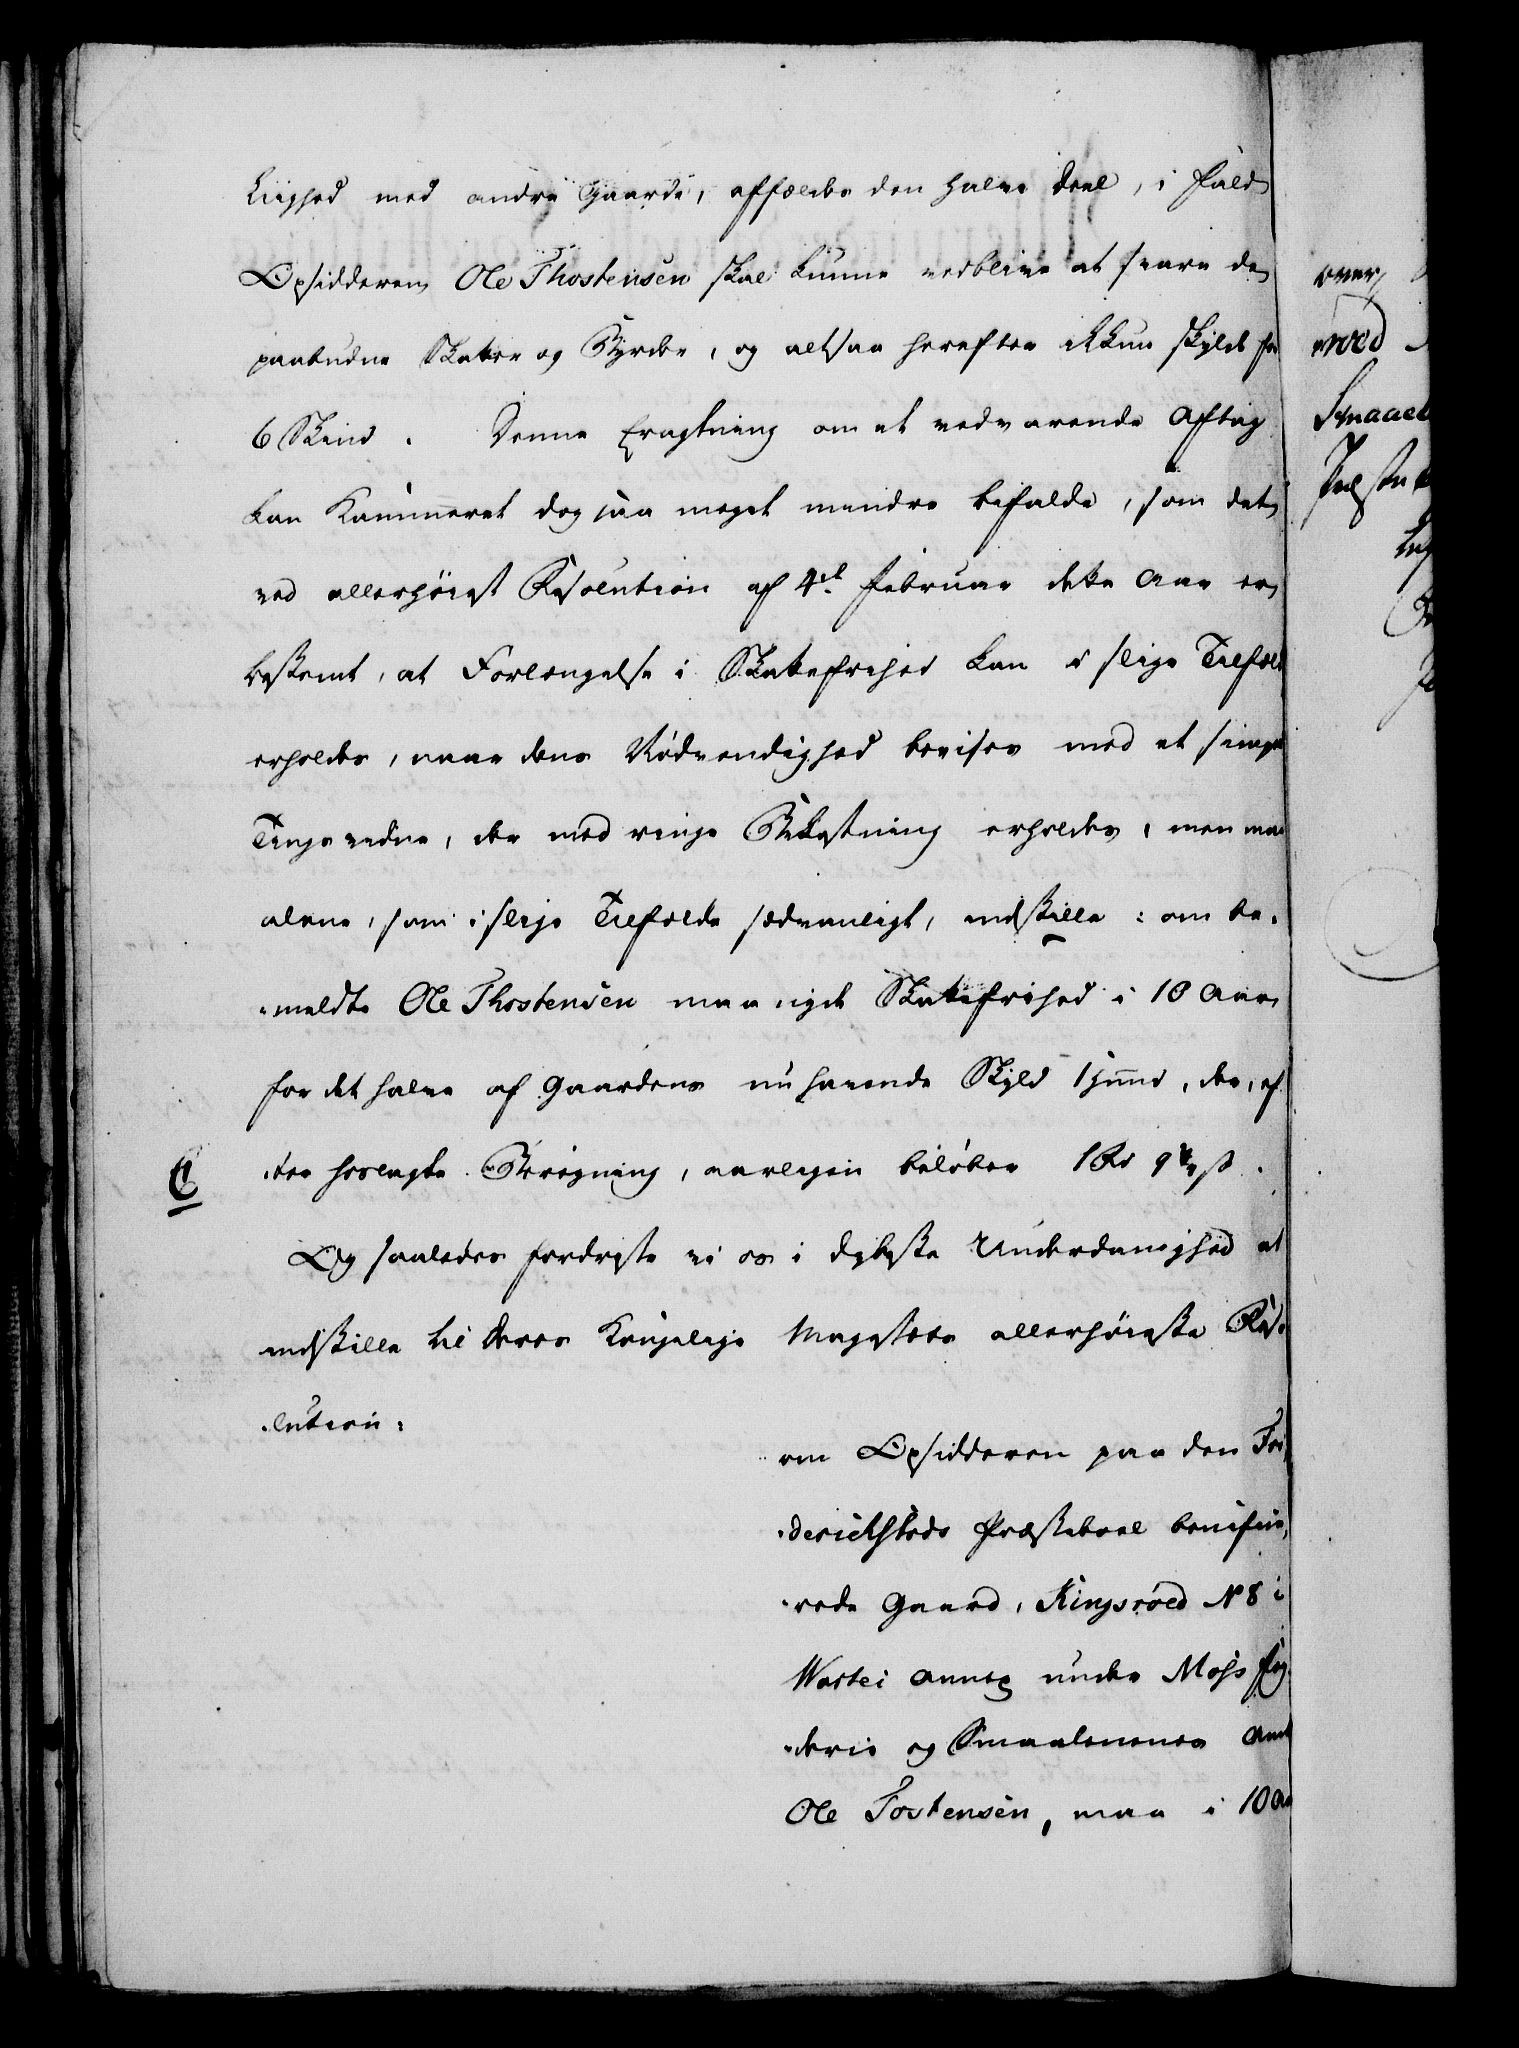 Liighed med andre Gaarde, affældes den halve Deel, i fald
Opsidderen Ole Thostensen skal kunne vedblive at svare de
paabudne Skatter og Byrder, og altsaa herefter ikkun skylde for
6 Skind. Denne Eragtning om et vedvarende Aftag
kan Kammeret dog saa meget mindre bifalde, som det
ved allerhøiest Resolution af 4de Februar dette Aar er
bestemt, at Forlængelse i Skattefrihed kan i slige Tilfælde
erholdes, naar dens Nødvendighed bevises med et
Tingsvidne, der med ringe Bekostning erholdes, men maa
alene, som i slige Tilfælde sædvanligt, indstille: om be-
-meldte Ole Thostensen maa nyde Skattefrihed i 10 Aar
for det halve af Gaardens nu havende Skyld 1 Hund, der, ef-
-ter hoslagte Beregning, aarligen beløber 1 Rd 9 ß.
C
Og saaledes fordriste vi os i dybeste Underdanighed at
indstille til Deres Kongelige Majestæts allerhøieste Reso-
-lution:
om Opsidderen paa den Fri-
-derichstads Præsteboel benefice-
-rede Gaard, Ringsröed N 8 i
Wartei Annex under Moss Fog-
-derie og Smaalenenes Amt
Ole Tostensen, maa i 10 Aar
over
röed
Smaael